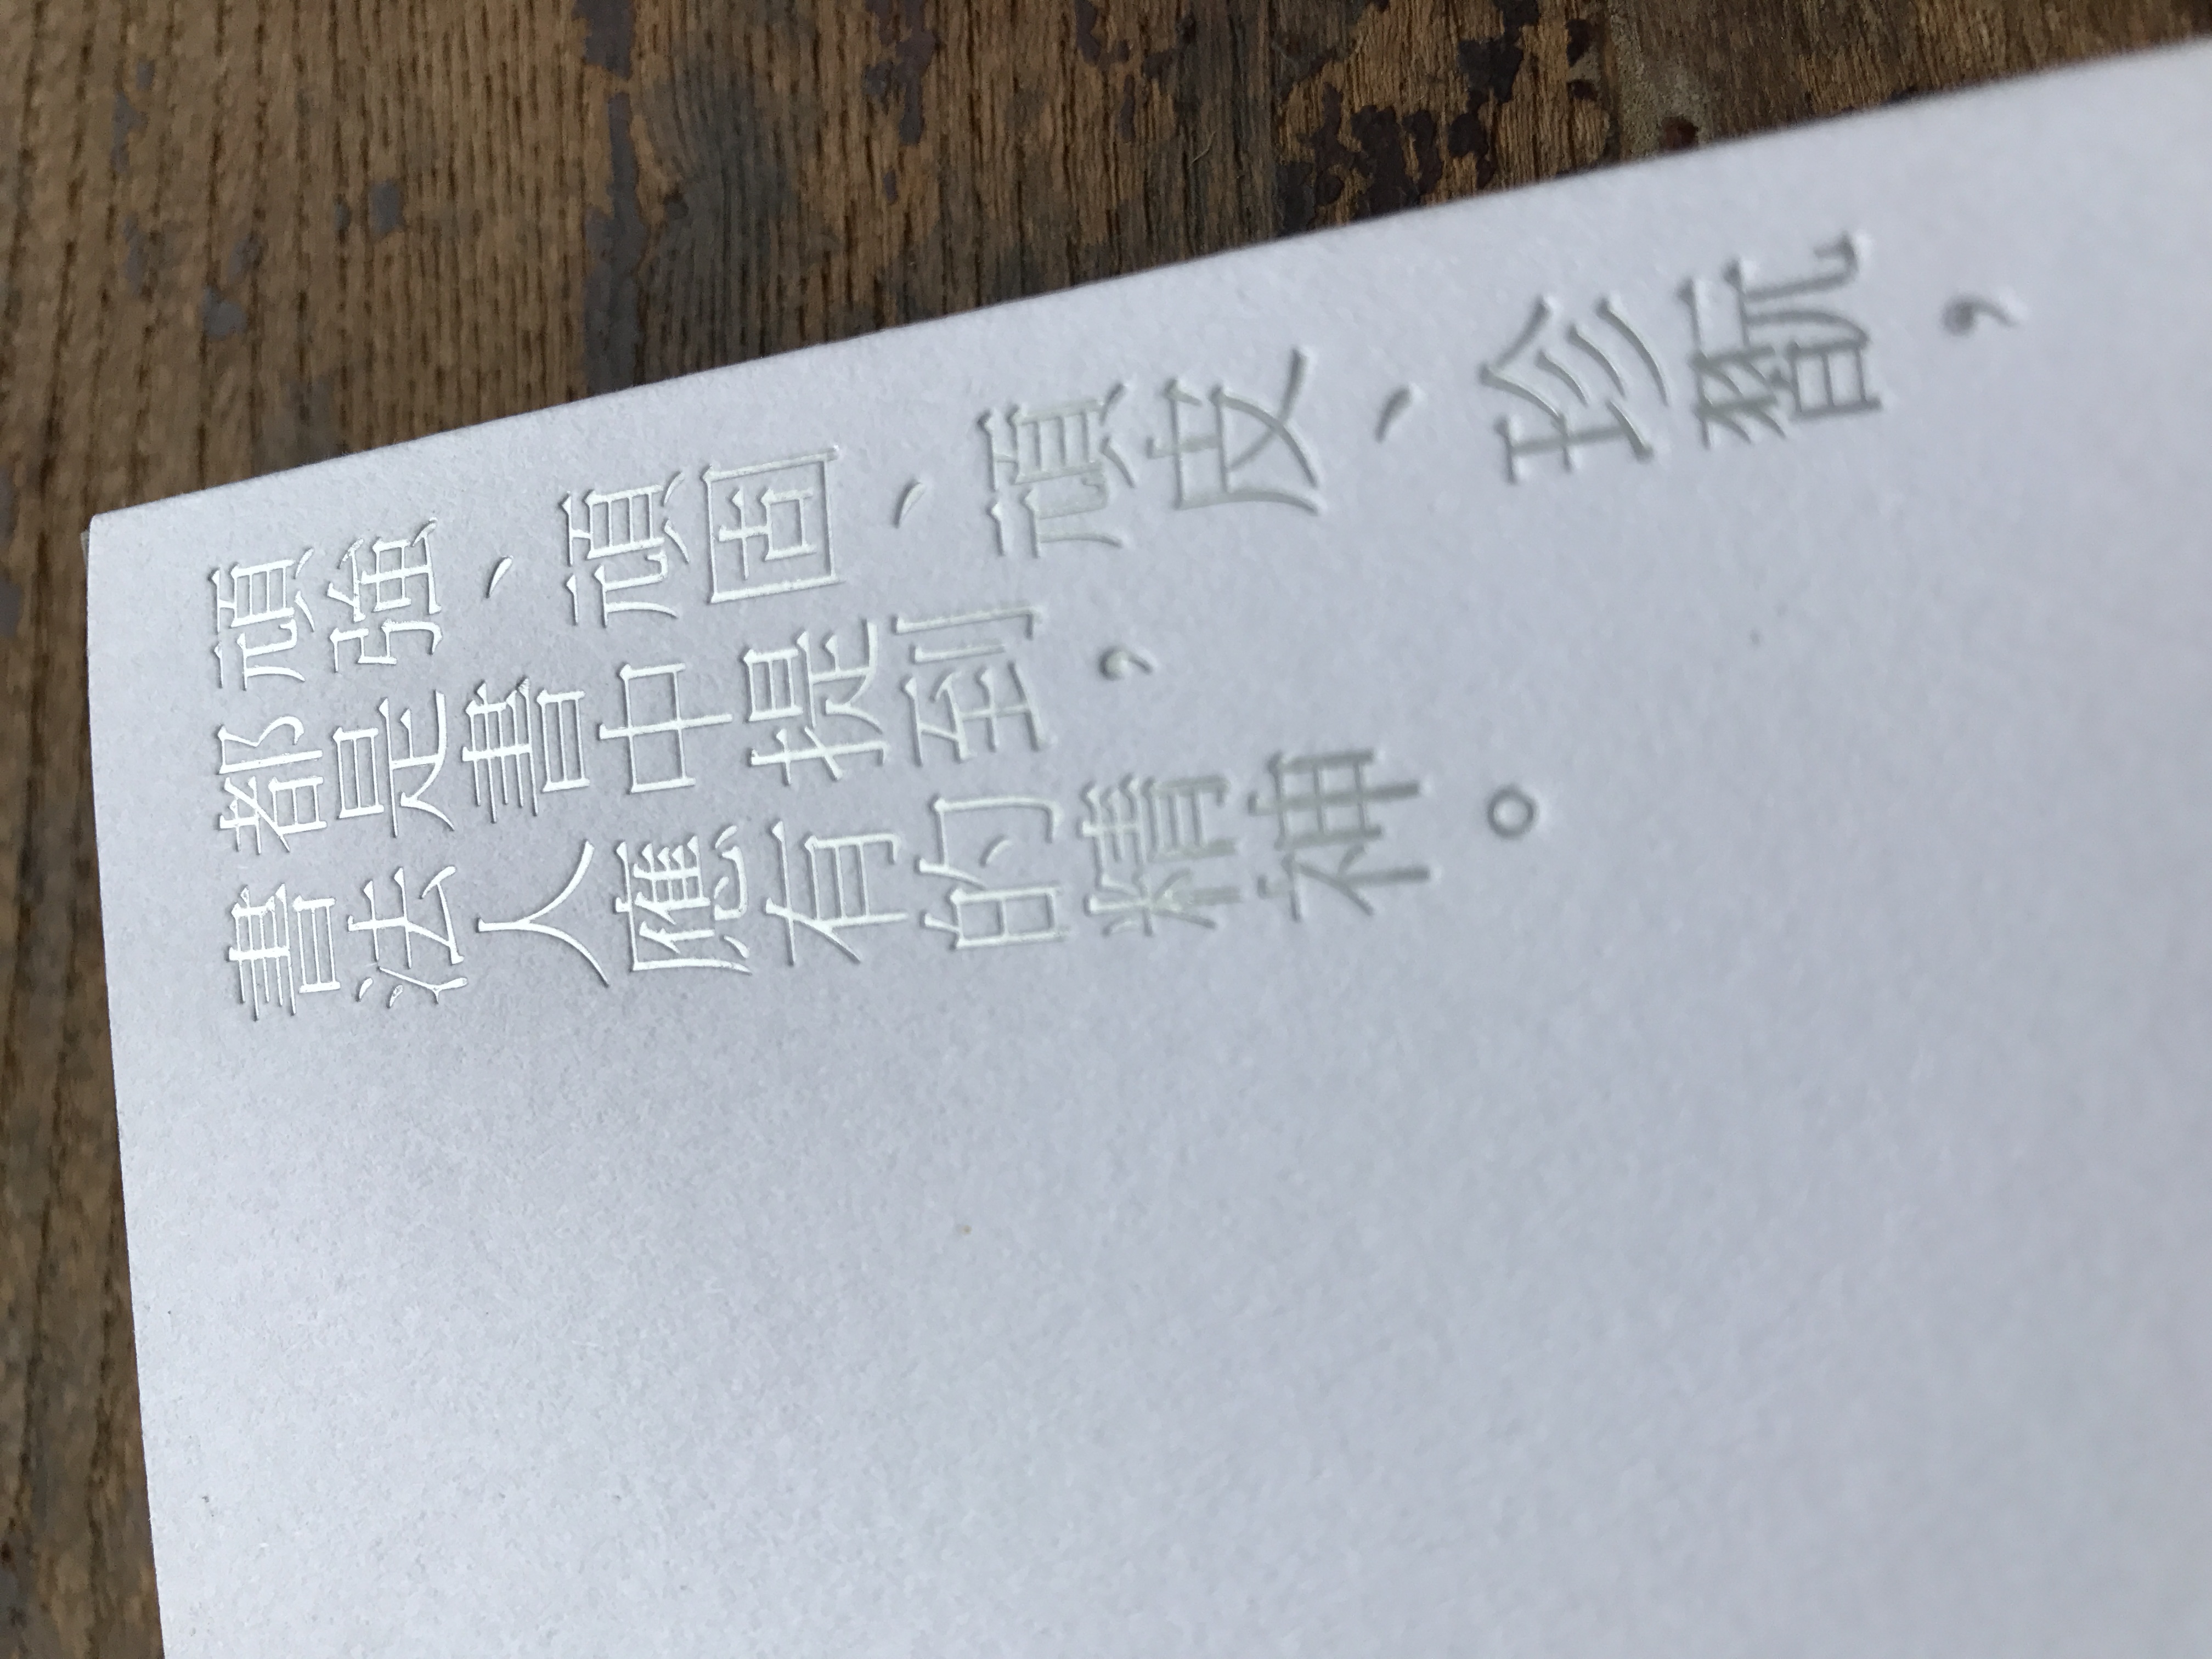 頑強、頑固、頑皮、珍翫，
都是書中提到，
書法人應有的精神。